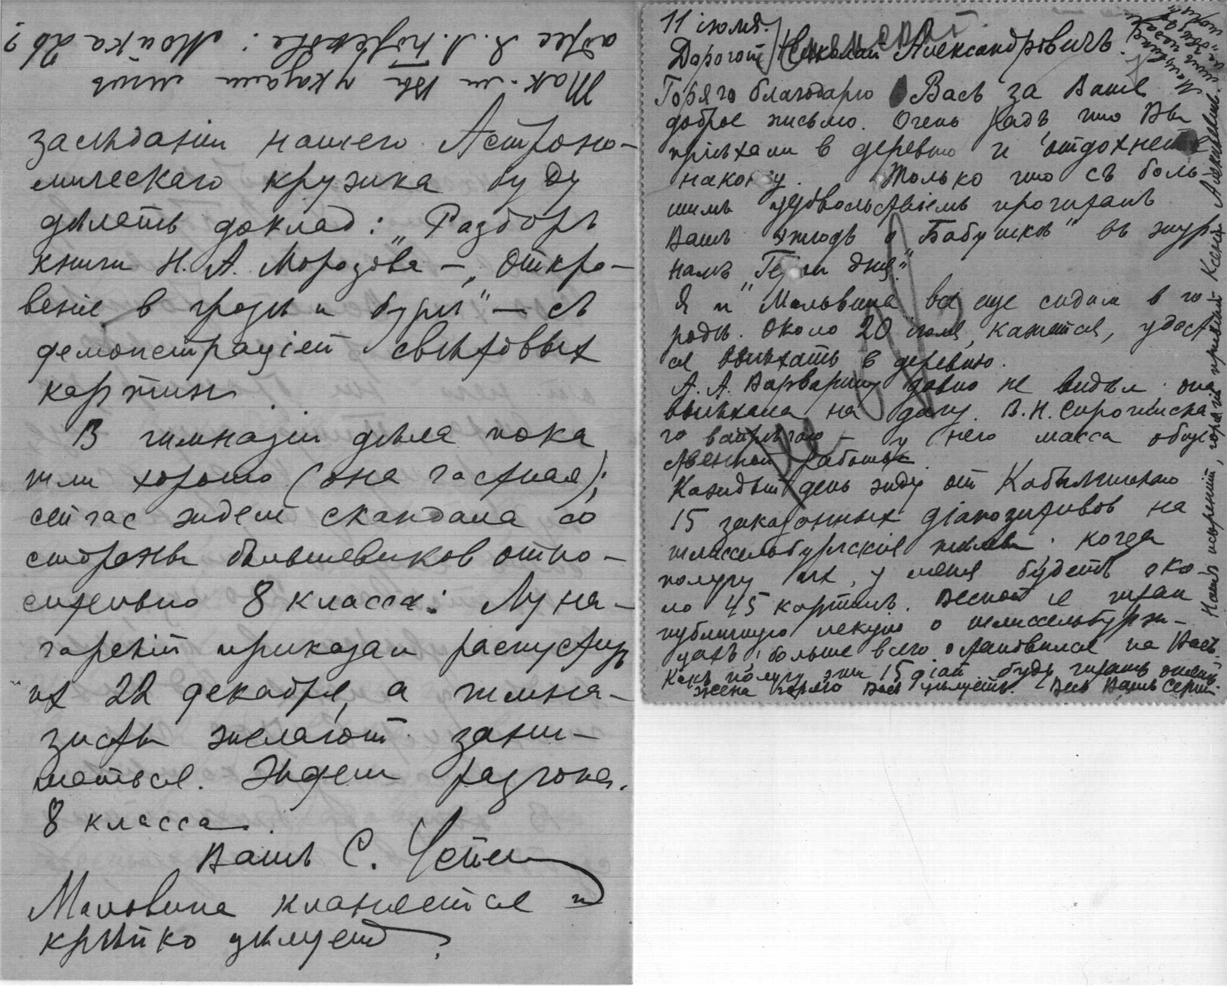 Так-ли Вы указали мнѣ
адрес Я. Л. : Мойка 26?
засѣданіи нашего Астроно-
мическаго кружка буду
дѣлать доклад: „Разборъ
книги Н. А. Морозова – „Откро-
веніе в грозѣ и бурѣ" – съ
демонстраціей свѣтовых
картин.
В гимназіи дѣла пока
шли хорошо (она частная);
сейчас ждем скандала со
стороны большевиков отно-
сительно 8 класса: Луна-
чарскій приказал распустить
их 22 декабря, а гимна-
зисты желают зани-
маться. Ждем разгона
8 класса.
Вашъ С.
Мальвина кланяется и
крѣпко цѣлует
11 іюля.
Дорогой Николай Александровичъ.
Горячо благодарю Васъ за Ваше
доброе письмо. Очень радъ что Вы
пріѣхали в деревню и отдохнете
наконец. Только что съ боль-
шимъ удовольствіемъ прочиталъ
Вашъ этюдъ о „Бабушкѣ" въ жур-
налѣ дня."
Я и Мальвина все еще сидим в го-
родѣ. Около 20 іюля, кажется, удаст-
ся выѣхать в деревню.
А. А. давно не видѣл она
выѣхала на дачу. В. Н.
го – у него масса общ-
ственной работы.
Каждый день жду от
15 заказанных діапозитивов на
шлиссельбургскія темы. Когда
получу их, у меня будетъ око-
ло 45 картинъ. Весной я читал
публичную лекцію о шлиссельбурж-
цахъ; больше всего остановился на Васъ.
Какъ получу эти 15 діап. буду читать опять.
Жена горячо Вас цѣлуетъ. Весь Вашъ Серг.
Нашъ искренній, горячій привѣт Ксеніи Алексѣевнѣ.